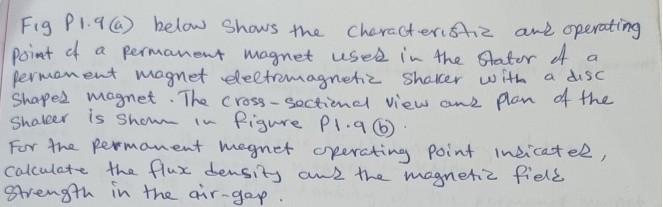 Fig P1.9(a) below shows the characteristiz and operating
point of a permanent magnet used in the stator of a
permanent magnet electromagnetiz shaker with a disc
shaped magnet. The cross-sectional view and plan of the
shaker is shown in figure P1.9(b).
For the permanent magnet operating point indicated,
calculate the flux density and the magnetiz field
strength in the air-gap.